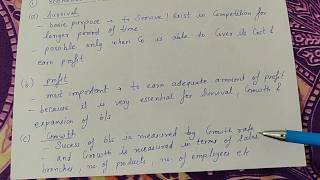 (i) Economic
(a) Survival
- basic purpose → to Survive / Exist in Competition for
longer period of time.
- possible only when Co is able to Cover its Cost &
earn profit
(b) profit
- most important → to earn adequate amount of profit
- because it is very essential for Survival, Growth &
expansion of b/s
(c) Growth
- Sucess of b/s is measured by Growth rate
- and Growth is measured in terms of Sales,
branches, no. of products, no. of employees etc